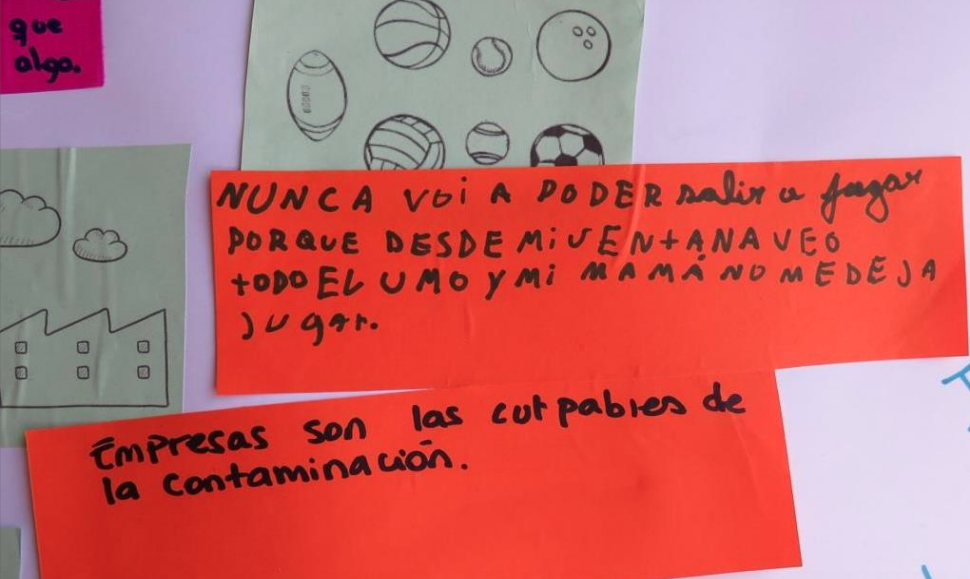 que
algo.
NUNCA VOi A PODER salir a jugar
PORQUE DESDE Mi VENtANA VEO
tODO EL UMO Y Mi MAMÁ NO ME DEJA
JUgAr.
Empresas son las culpables de
la contaminación.